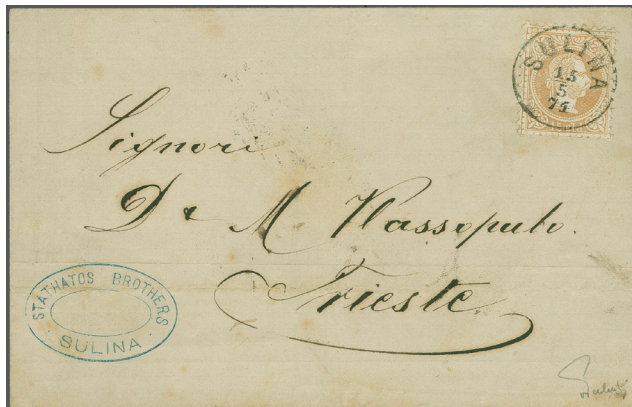 SULINA
15
5
74
Signori
D & M Vlassopulo.
Trieste
STATHATOS BROTHERS
SULINA